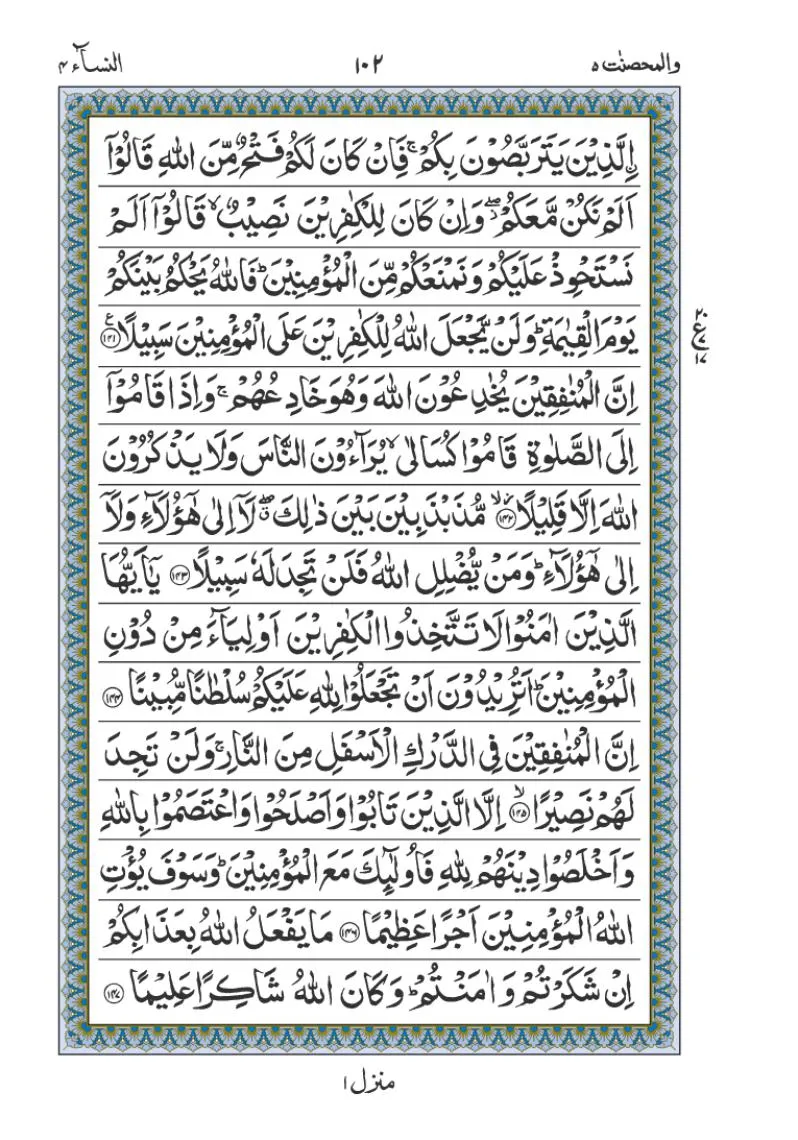 والمحصنٰت ۵ ۱۰۲ النسآء ۴
اِۨلَّذِيْنَ يَتَرَبَّصُوْنَ بِكُمْ ۚ فَاِنْ كَانَ لَكُمْ فَتْحٌ مِّنَ اللّٰهِ قَالُوْۤا
اَلَمْ نَكُنْ مَّعَكُمْ ۖ وَاِنْ كَانَ لِلْكٰفِرِيْنَ نَصِيْبٌ ۙ قَالُوْۤا اَلَمْ
نَسْتَحْوِذْ عَلَيْكُمْ وَنَمْنَعْكُمْ مِّنَ الْمُؤْمِنِيْنَ ؕ فَاللّٰهُ يَحْكُمُ بَيْنَكُمْ
يَوْمَ الْقِيٰمَةِ ؕ وَلَنْ يَّجْعَلَ اللّٰهُ لِلْكٰفِرِيْنَ عَلَى الْمُؤْمِنِيْنَ سَبِيْلًا ۱۴۱ ع
۲۰ ع ۷ ۱۷
اِنَّ الْمُنٰفِقِيْنَ يُخٰدِعُوْنَ اللّٰهَ وَهُوَ خَادِعُهُمْ ۚ وَاِذَا قَامُوْۤا
اِلَى الصَّلٰوةِ قَامُوْا كُسَالٰى ۙ يُرَآءُوْنَ النَّاسَ وَلَا يَذْكُرُوْنَ
اللّٰهَ اِلَّا قَلِيْلًا ۱۴۲ مُّذَبْذَبِيْنَ بَيْنَ ذٰلِكَ ۖ لَاۤ اِلٰى هٰۤؤُلَآءِ وَلَاۤ
اِلٰى هٰۤؤُلَآءِ ؕ وَمَنْ يُّضْلِلِ اللّٰهُ فَلَنْ تَجِدَ لَهٗ سَبِيْلًا ۱۴۳ يٰۤاَيُّهَا
الَّذِيْنَ اٰمَنُوْا لَا تَتَّخِذُوا الْكٰفِرِيْنَ اَوْلِيَآءَ مِنْ دُوْنِ
الْمُؤْمِنِيْنَ ؕ اَتُرِيْدُوْنَ اَنْ تَجْعَلُوْا لِلّٰهِ عَلَيْكُمْ سُلْطٰنًا مُّبِيْنًا ۱۴۴
اِنَّ الْمُنٰفِقِيْنَ فِى الدَّرْكِ الْاَسْفَلِ مِنَ النَّارِ ۚ وَلَنْ تَجِدَ
لَهُمْ نَصِيْرًا ۙ ۱۴۵ اِلَّا الَّذِيْنَ تَابُوْا وَاَصْلَحُوْا وَاعْتَصَمُوْا بِاللّٰهِ
وَاَخْلَصُوْا دِيْنَهُمْ لِلّٰهِ فَاُولٰٓئِكَ مَعَ الْمُؤْمِنِيْنَ ؕ وَسَوْفَ يُؤْتِ
اللّٰهُ الْمُؤْمِنِيْنَ اَجْرًا عَظِيْمًا ۱۴۶ مَا يَفْعَلُ اللّٰهُ بِعَذَابِكُمْ
اِنْ شَكَرْتُمْ وَاٰمَنْتُمْ ؕ وَكَانَ اللّٰهُ شَاكِرًا عَلِيْمًا ۱۴۷
منزل ۱